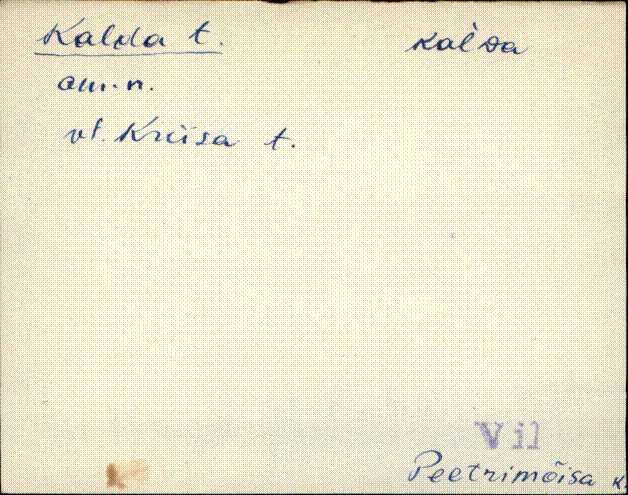 Kalda t. kalda
am.n.
vt. Kriisa t.
Vil
Peetrimõisa k.